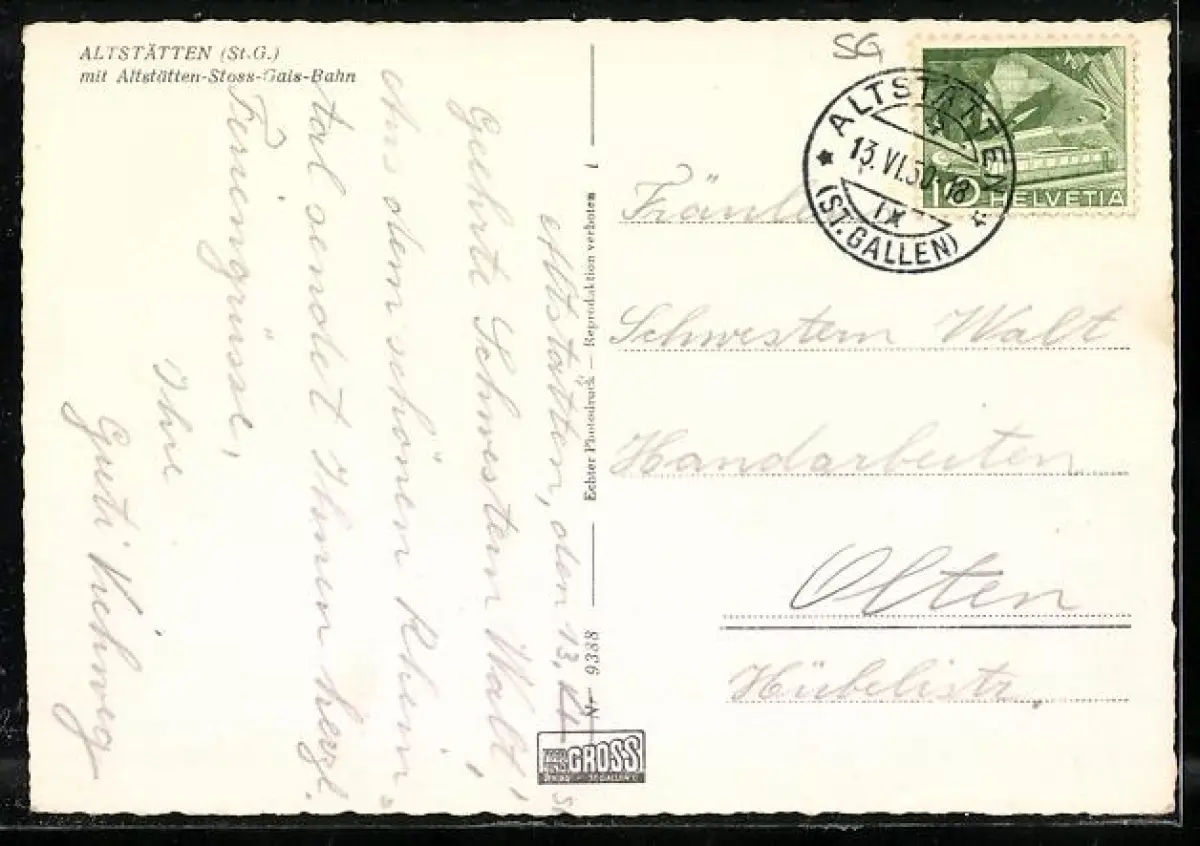 ALTSTÄTTEN (St.G.)
mit Altstätten-Stoss-Gais-Bahn
Altstätten, den 13.
Geehrte Schwestern Walt,
Aus dem schönen Rhein-
tal sendet Ihnen herzl.
Feriengrüsse,
Ihre
Gusti
Nr 9388
Echter Photodruck — Reproduktion verboten
1
GROSS
ST. GALLEN
SG
ALTSTÄTTEN
13.VI.50-18
(ST. GALLEN)
10 HELVETIA
Schwestern Walt
Handarbeiten
Olten
Hübelistr.